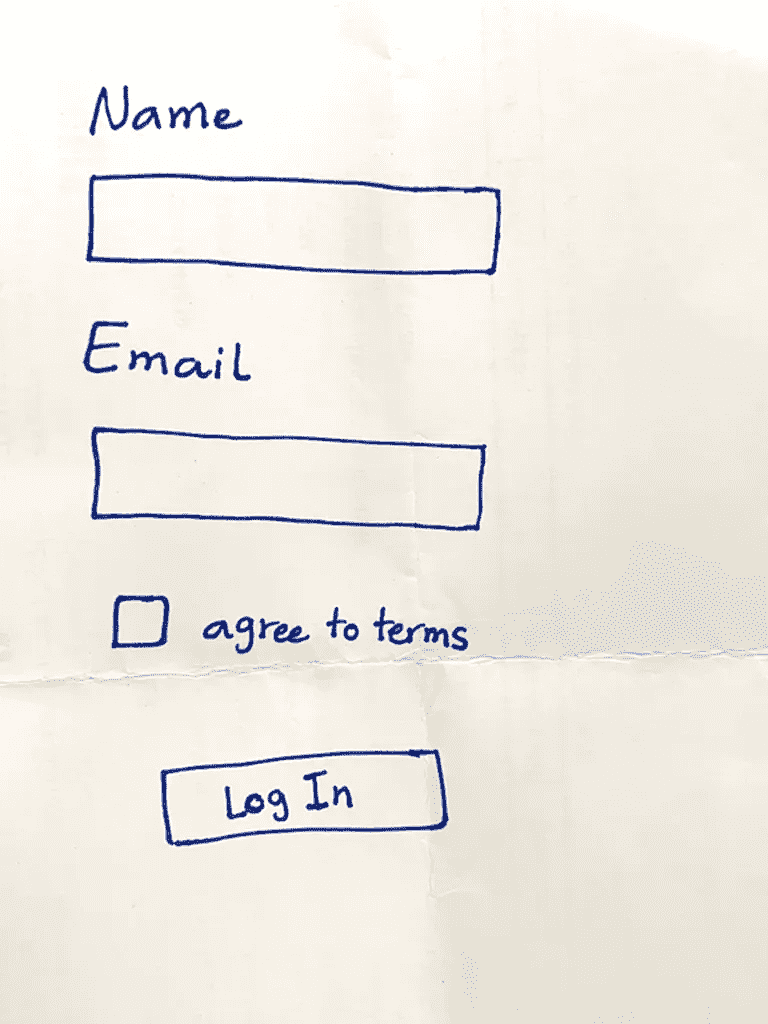 Name
Email
agree to terms
Log In